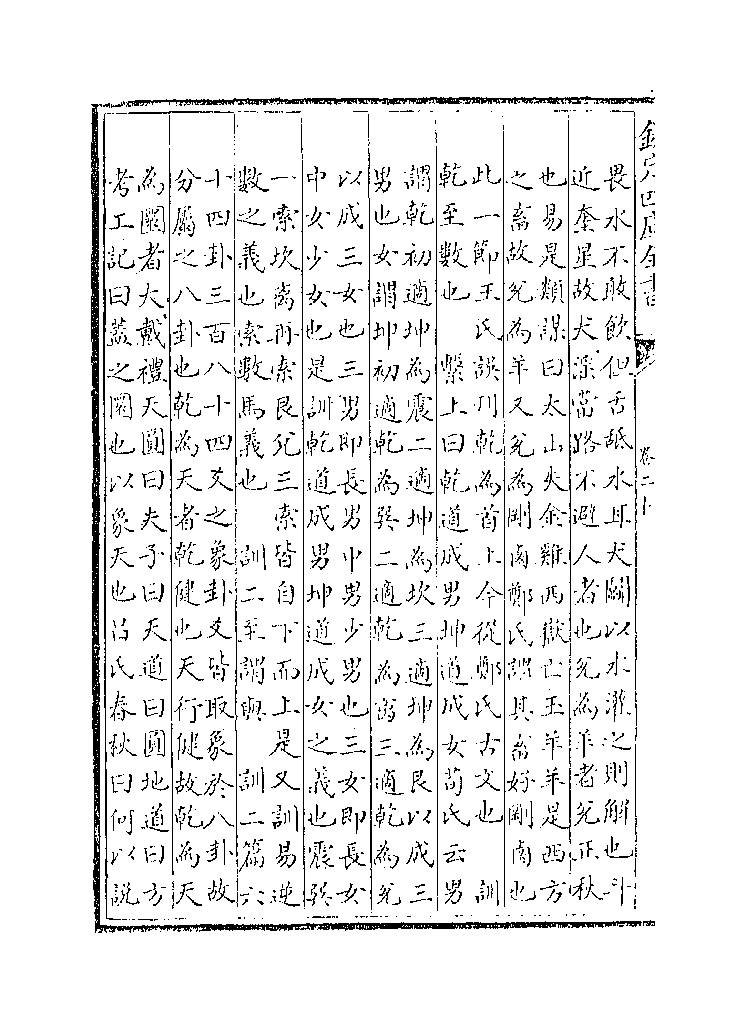 欽定四庫全書
卷二十
畏水不敢飲但舌䑛水耳犬鬭以水灌之則解也斗
近奎星故犬淫當路不避人者也兌為羊者兌正秋
也易是類謀曰太山失金雞西嶽亡玉羊羊是西方
之畜故兌為羊又兌為剛鹵鄭氏謂其畜好剛鹵也
此一節王氏誤刋乾為首上今從鄭氏古文也 訓
乾至數也 繫上曰乾道成男坤道成女荀氏云男
謂乾初適坤為震二適坤為坎三適坤為艮以成三
男也女謂坤初適乾為巽二適乾為离三適乾為兌
以成三女也三男即長男中男少男也三女即長女
中女少女也是訓乾道成男坤道成女之義也震巽
一索坎离再索艮兌三索皆自下而上是又訓易逆
數之義也索數馬義也 訓二至謂與 訓二篇六
十四卦三百八十四爻之象卦爻皆取象於八卦故
分屬之八卦也乾為天者乾健也天行健故乾為天
為圜者大戴禮天圓曰夫子曰天道曰圓地道曰方
考工記曰蓋之圜也以象天也吕氏春秋曰何以説